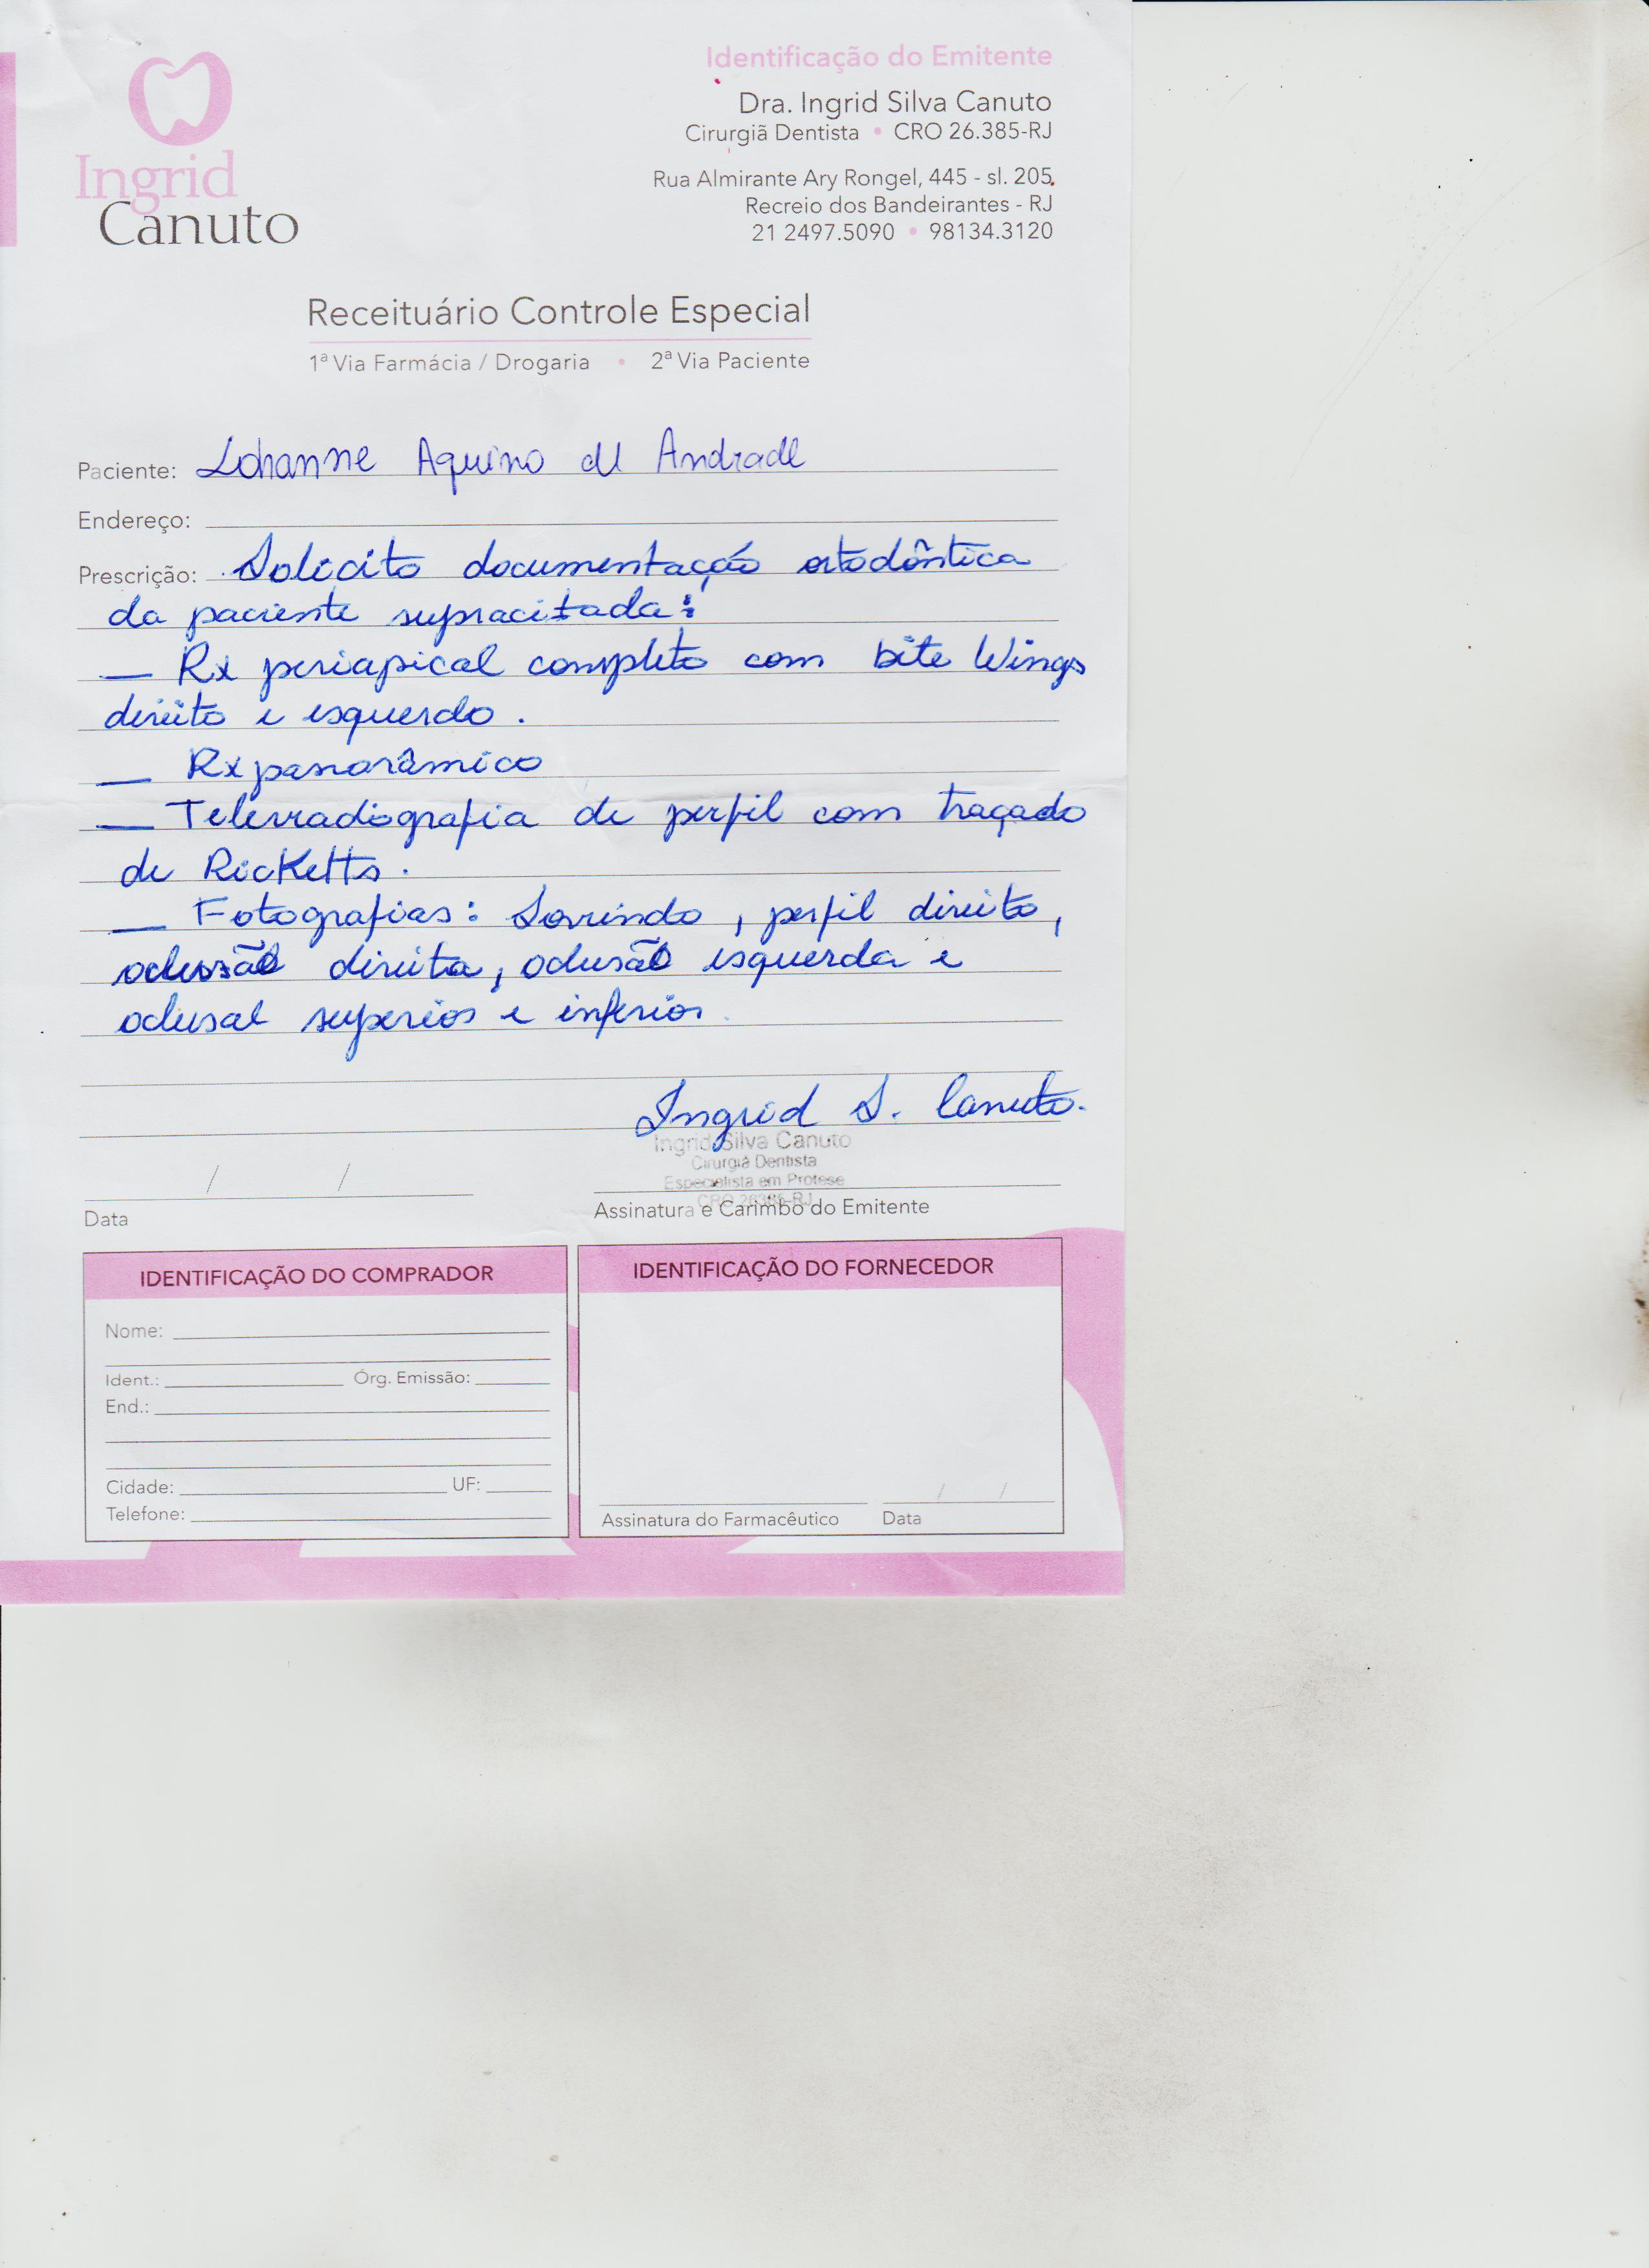 Ingrid
Canuto
Identificação do Emitente
Dra. Ingrid Silva Canuto
Cirurgiã Dentista • CRO 26.385-RJ
Rua Almirante Ary Rongel, 445 - sl. 205
Recreio dos Bandeirantes - RJ
21 2497.5090 • 98134.3120
Receituário Controle Especial
1ª Via Farmácia / Drogaria • 2ª Via Paciente
Paciente: Lohanne Aquino de Andrade
Endereço:
Prescrição: Solicito documentação ortodôntica
da paciente supracitada:
— Rx periapical completo com bite Wings
direito e esquerdo.
— Rx panorâmico
— Telerradiografia de perfil com traçado
de Ricketts.
— Fotografias: Sorrindo, perfil direito,
oclusão direita, oclusão esquerda e
oclusal superior e inferior.
Ingrid S. Canuto.
Ingrid Silva Canuto
Cirurgiã Dentista
Especialista em Protese
CRO 26385-RJ
/ /
Data
Assinatura e Carimbo do Emitente
IDENTIFICAÇÃO DO COMPRADOR
Nome:
Ident.: Órg. Emissão:
End.:
Cidade: UF:
Telefone:
IDENTIFICAÇÃO DO FORNECEDOR
/ /
Assinatura do Farmacêutico Data